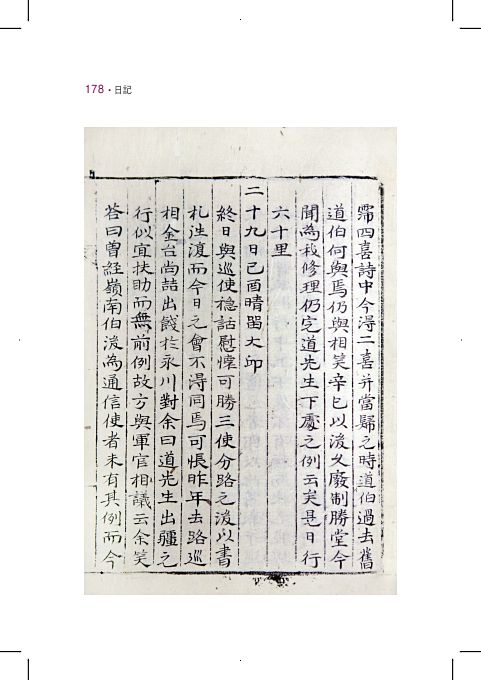 178 · 日記
霈四喜詩中今得二喜并當歸之時道伯過去舊
道伯何與焉仍與相笑辛巳以後久廢制勝堂今
聞為我修理仍定道先生下處之例云矣是日行
六十里
二十九日己酉晴留大邱
終日與巡使穩話慰懷可勝三使分路之後以書
札往復而今日之會不得同焉可悵昨年去路巡
相金台尚喆出餞於永川對余曰道先生出疆之
行似宜扶助而無前例故方與軍官相議云余笑
答曰曾經嶺南伯後為通信使者未有其例而今